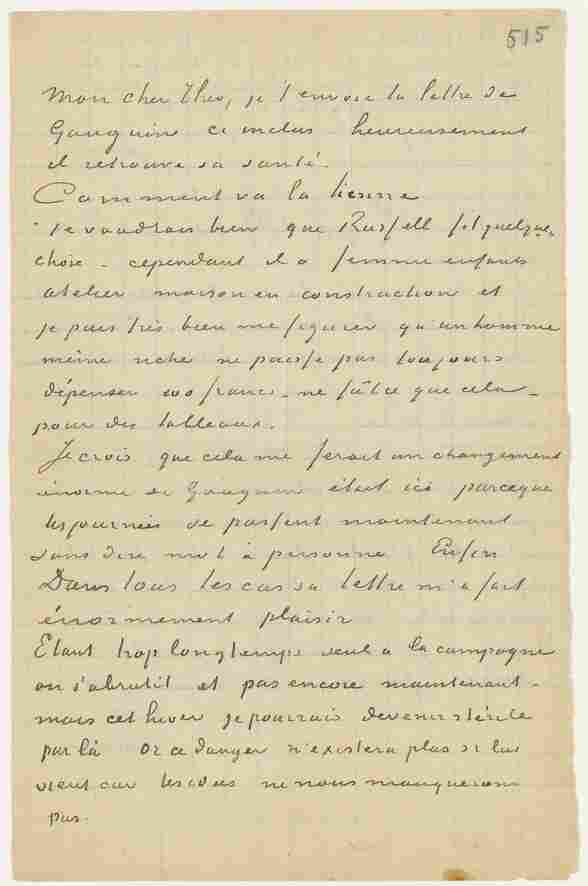 515
Mon cher Theo, je t'envoie la lettre de
Gauguin ci inclus heureusement
il retrouve sa santé.
Comment va la tienne
Je voudrais bien que Russell fit quelque
chose – cependant il a femme enfants
atelier maison en construction et
je puis très bien me figurer qu'un homme
même riche ne puisse pas toujours
dépenser 100 francs – ne fût ce que cela –
pour des tableaux.
Je crois que cela me ferait un changement
énorme si Gauguin était ici parceque
les journées se passent maintenant
sans dire mot à personne Enfin
Dans tous les cas sa lettre m'a fait
énormement plaisir
Etant trop longtemps seul a la campagne
on s'abrutit et pas encore maintenant –
mais cet hiver je pourrais devenir stérile
par là Or ce danger n'existera plus si lui
vient car les idées ne nous manqueront
pas.